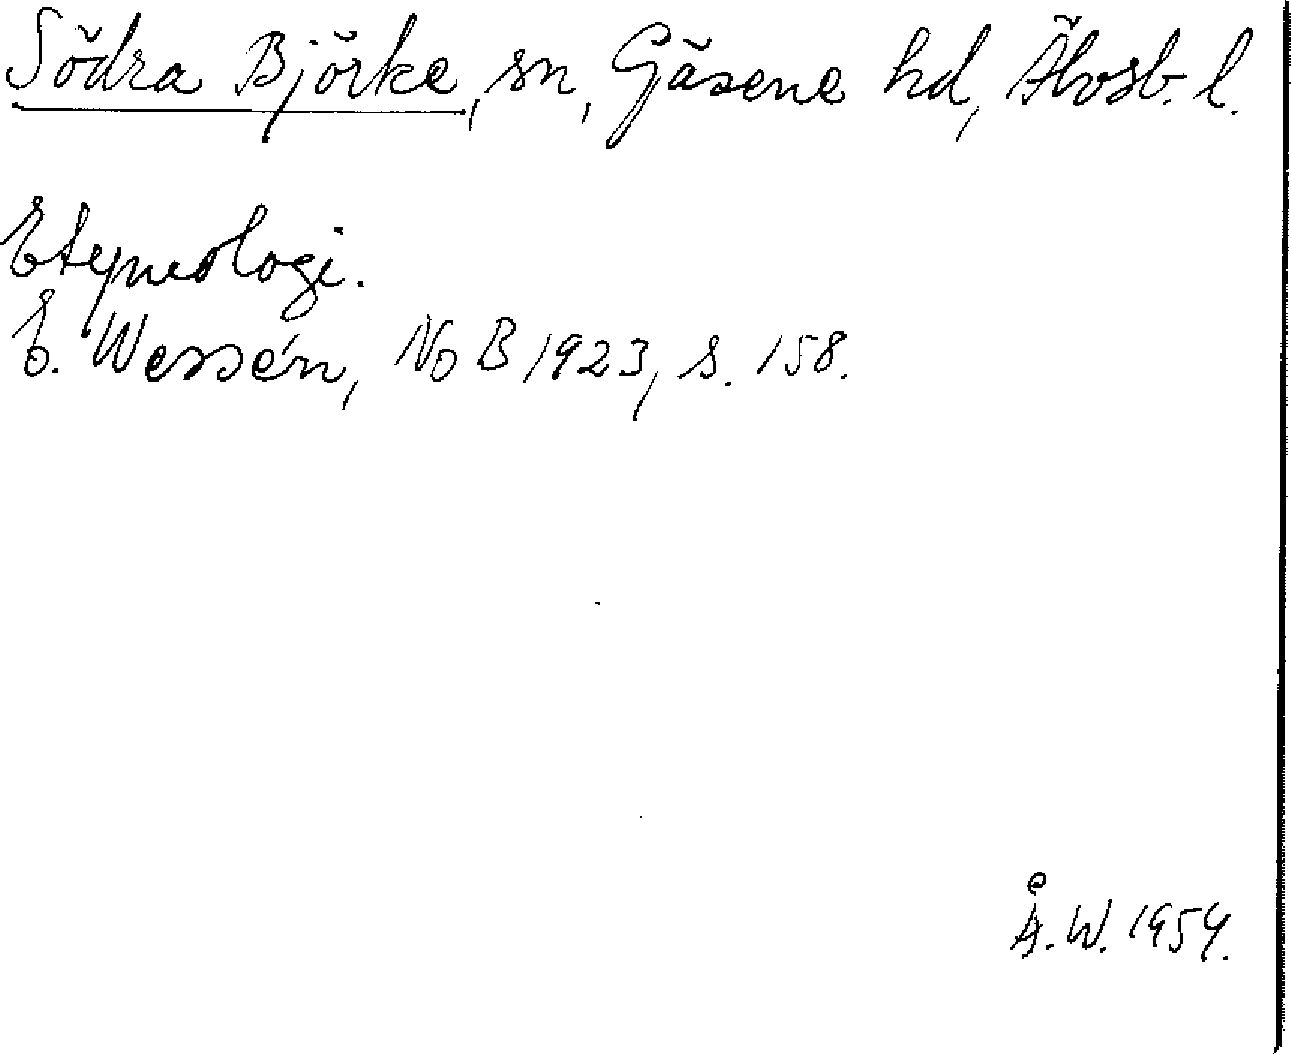 Södra Björke, sn, Gäsene hd, Älvsb. l.
Etymologi.
E. Wessén, NoB 1923, s. 158.
Å. W. 1954.